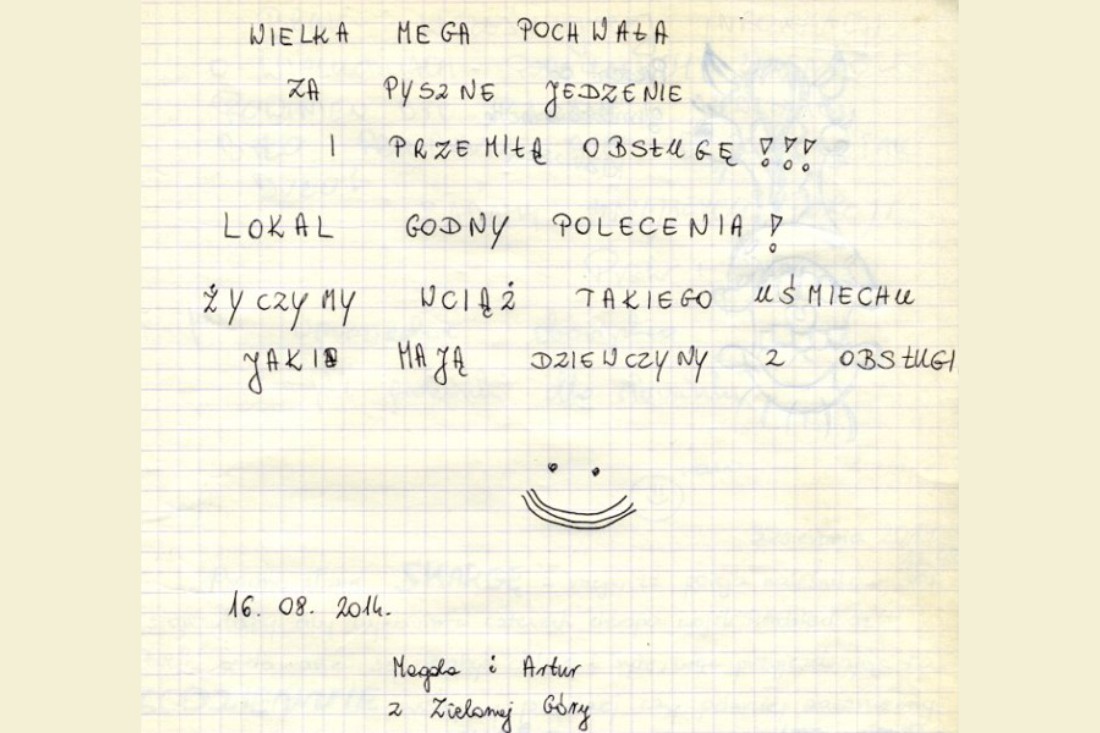 WIELKA MEGA POCHWAŁA
ZA PYSZNE JEDZENIE
I PRZEMIŁĄ OBSŁUGĘ !!!
LOKAL GODNY POLECENIA !
ŻYCZYMY WCIĄŻ TAKIEGO UŚMIECHU
JAKI MAJĄ DZIEWCZYNY Z OBSŁUGI
16. 08. 2014.
Magda i Artur
z Zielonej Góry